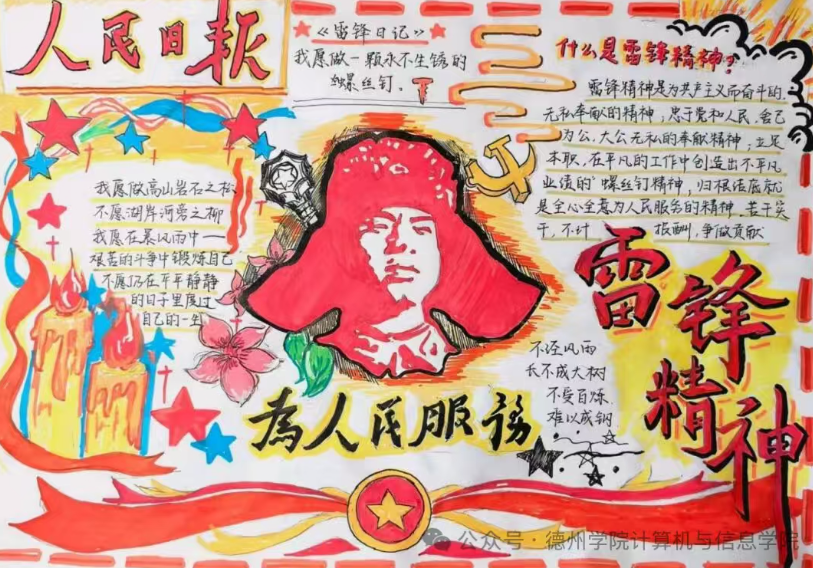 人民日报
《雷锋日记》
我愿做一颗永不生锈的
螺丝钉。
什么是雷锋精神?
雷锋精神是为共产主义而奋斗的
无私奉献的精神;忠于党和人民、舍己
为公、大公无私的奉献精神;立足
本职、在平凡的工作中创造出不平凡
业绩的"螺丝钉精神,归根结底就
是全心全意为人民服务的精神。苦干实
干,不计 报酬,争做贡献
我愿做高山岩石之松
不愿湖岸河旁之柳
我愿在暴风雨中——
艰苦的斗争中锻炼自己
不愿在平平静静
的日子里度过
自己的一生
雷锋
精神
不经风雨
长不成大树
不受百炼
难以成钢
为人民服务
公众号·德州学院计算机与信息学院